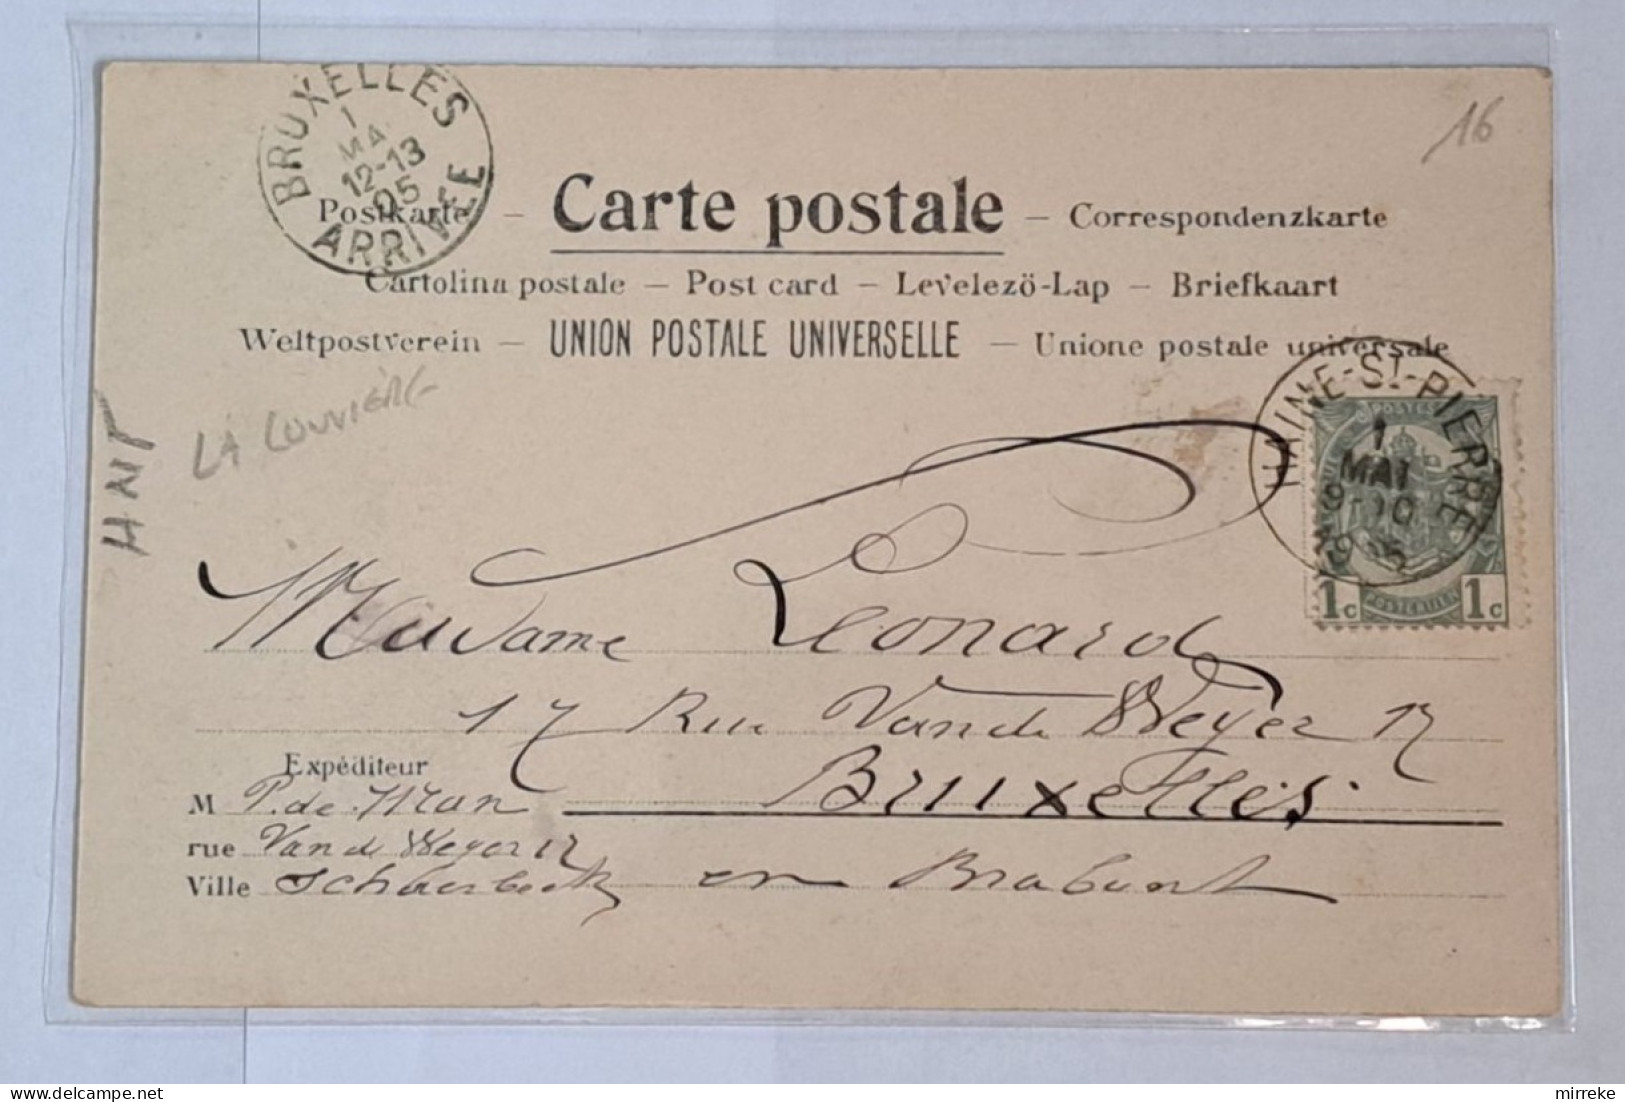 BRUXELLES
1
MAI
12-13
05
ARRIVÉE
16
Postkarte – Carte postale – Correspondenzkarte
Cartolina postale – Post card – Levelezö-Lap – Briefkaart
Weltpostverein – UNION POSTALE UNIVERSELLE – Unione postale universale
LA LOUVIÈRE
HAINE-ST-PIERRE
1
MAI
1905
POSTES
1c POSTERIJEN 1c
Madame Leonard
17 Rue Van de Weyer 17
Bruxelles
Expéditeur
M P. de
rue Van de Weyer 17
Ville Schaerbeek en Brabant
mirreke